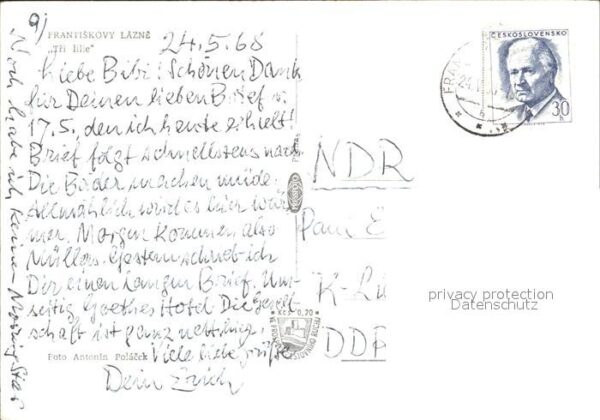 9)
FRANTIŠKOVY LÁZNĚ
„Tři lilie"
24.5.68
Liebe Bibi! Schönen Dank
für Deinen lieben Brief v.
17.5., den ich heute erhielt!
Brief folgt schnellstens nach.
Die Bäder machen müde.
Allmählich wird es hier wär-
mer. Morgen kommen also
Müllers. Gestern schrieb ich
Dir einen langen Brief. Um-
seitig Goethes Hotel. Die Gesell-
schaft ist ganz nett.
Viele liebe Grüße
Dein Erich
Foto Antonín Poláček
Noch habe ich keinen Morning Star
Kčs 0,20
ČESKOSLOVENSKO
30
FRAN
24.
NDR
Paul E
K-Lu
DDR
privacy protection
Datenschutz